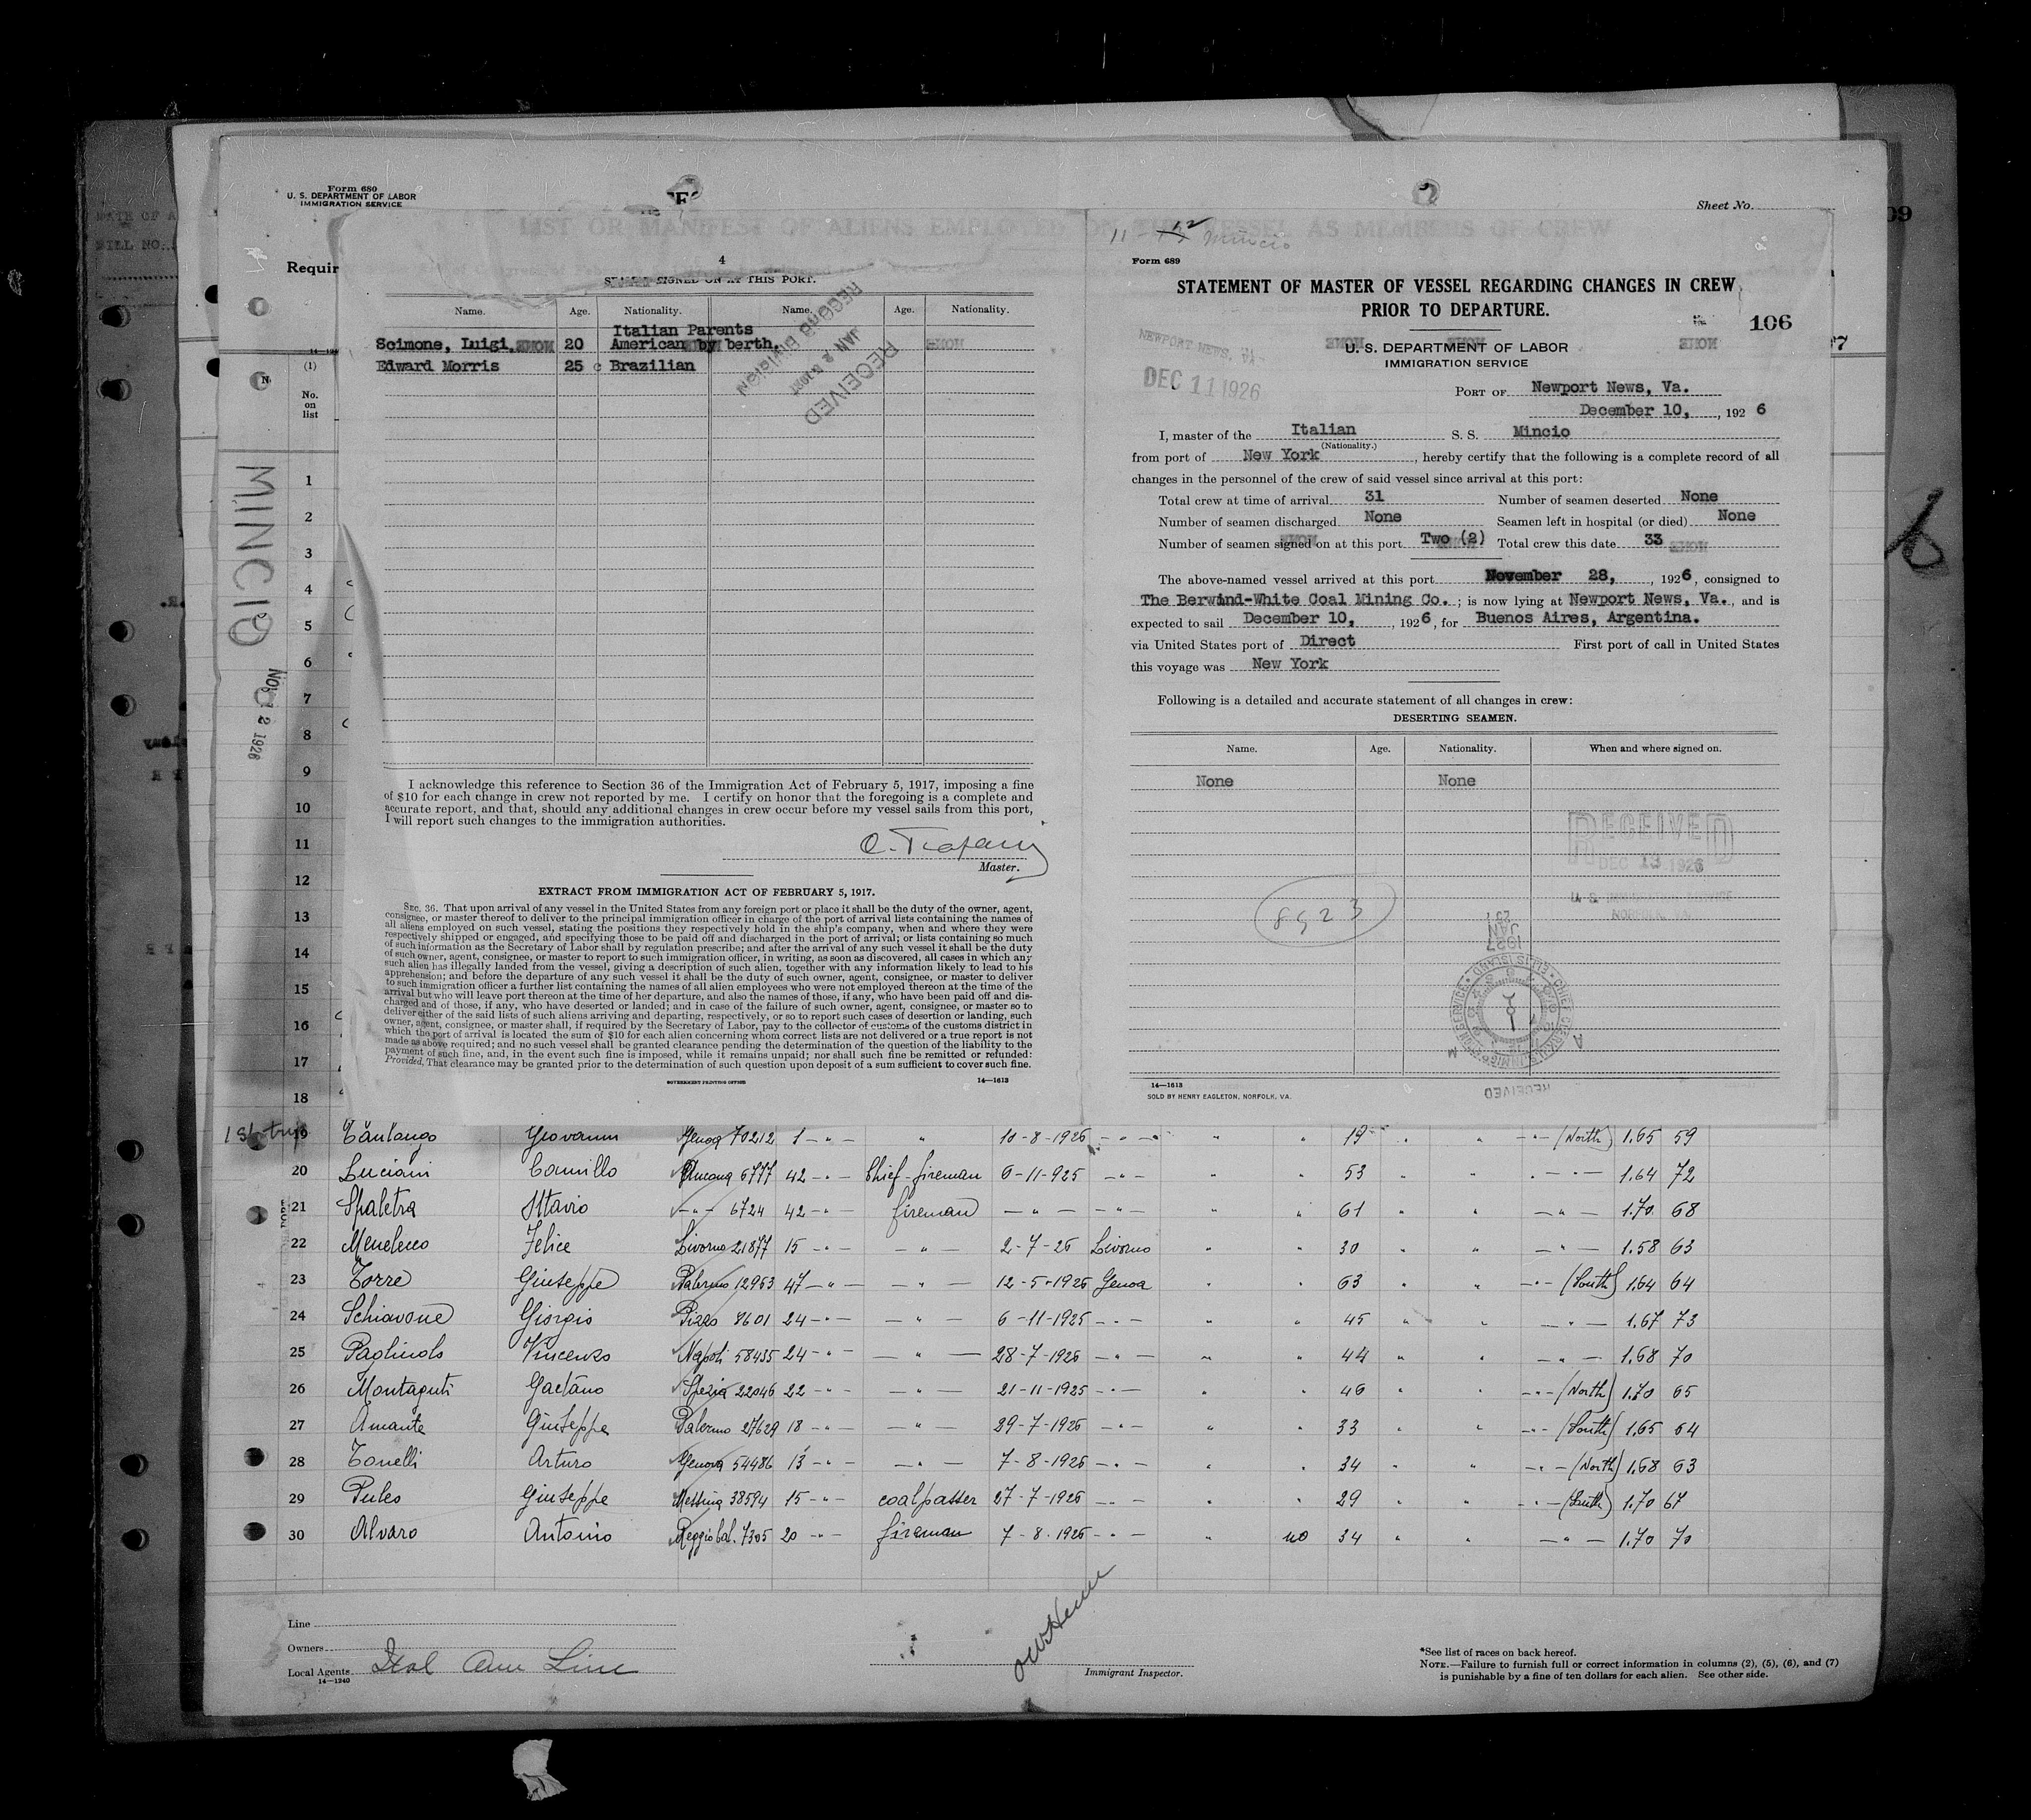 Form 680
U. S. DEPARTMENT OF LABOR
IMMIGRATION SERVICE
Sheet No.
LIST OR MANIFEST OF ALIENS EMPLOYED ON THE VESSEL AS MEMBERS OF CREW
Requir
(1)
No.
on
list
MINCIO
NOV 12 1926
1
2
3
4
5
6
7
8
9
10
11
12
13
14
15
16
17
18
4
SIGNED ON AT THIS PORT.
Name. Age. Nationality. Name. Age. Nationality.
Italian Parents
Scimone, Luigi. 20 American by berth.
Edward Morris 25 Brazilian
RECEIVED
RECORD DIVISION
I acknowledge this reference to Section 36 of the Immigration Act of February 5, 1917, imposing a fine
of $10 for each change in crew not reported by me. I certify on honor that the foregoing is a complete and
accurate report, and that, should any additional changes in crew occur before my vessel sails from this port,
I will report such changes to the immigration authorities.
Master.
EXTRACT FROM IMMIGRATION ACT OF FEBRUARY 5, 1917.
SEC. 36. That upon arrival of any vessel in the United States from any foreign port or place it shall be the duty of the owner, agent,
consignee, or master thereof to deliver to the principal immigration officer in charge of the port of arrival lists containing the names of
all aliens employed on such vessel, stating the positions they respectively hold in the ship's company, when and where they were
respectively shipped or engaged, and specifying those to be paid off and discharged in the port of arrival; or lists containing so much
of such information as the Secretary of Labor shall by regulation prescribe; and after the arrival of any such vessel it shall be the duty
of such owner, agent, consignee, or master to report to such immigration officer, in writing, as soon as discovered, all cases in which any
such alien has illegally landed from the vessel, giving a description of such alien, together with any information likely to lead to his
apprehension; and before the departure of any such vessel it shall be the duty of such owner, agent, consignee, or master to deliver
to such immigration officer a further list containing the names of all alien employees who were not employed thereon at the time of the
arrival but who will leave port thereon at the time of her departure, and also the names of those, if any, who have been paid off and dis-
charged and of those, if any, who have deserted or landed; and in case of the failure of such owner, agent, consignee, or master so to
deliver either of the said lists of such aliens arriving and departing, respectively, or so to report such cases of desertion or landing, such
owner, agent, consignee, or master shall, if required by the Secretary of Labor, pay to the collector of customs of the customs district in
which the port of arrival is located the sum of $10 for each alien concerning whom correct lists are not delivered or a true report is not
made as above required; and no such vessel shall be granted clearance pending the determination of the question of the liability to the
payment of such fine, and, in the event such fine is imposed, while it remains unpaid; nor shall such fine be remitted or refunded:
Provided, That clearance may be granted prior to the determination of such question upon deposit of a sum sufficient to cover such fine.
GOVERNMENT PRINTING OFFICE 14—1613
Mincio
Form 689
STATEMENT OF MASTER OF VESSEL REGARDING CHANGES IN CREW
PRIOR TO DEPARTURE.
106
U. S. DEPARTMENT OF LABOR
IMMIGRATION SERVICE
NEWPORT NEWS, VA.
DEC 11 1926
PORT OF Newport News, Va.
December 10, , 1926
I, master of the Italian S. S. Mincio
(Nationality.)
from port of New York , hereby certify that the following is a complete record of all
changes in the personnel of the crew of said vessel since arrival at this port:
Total crew at time of arrival 31 Number of seamen deserted None
Number of seamen discharged None Seamen left in hospital (or died) None
Number of seamen signed on at this port Two (2) Total crew this date 33
The above-named vessel arrived at this port November 28, , 1926, consigned to
The Berwind-White Coal Mining Co. ; is now lying at Newport News, Va. , and is
expected to sail December 10, , 1926, for Buenos Aires, Argentina.
via United States port of Direct First port of call in United States
this voyage was New York
Following is a detailed and accurate statement of all changes in crew:
DESERTING SEAMEN.
Name. Age. Nationality. When and where signed on.
None None
RECEIVED
DEC 13 1926
U. S. IMMIGRATION SERVICE
NORFOLK, VA.
8923
1927
JAN
25
RECEIVED
14—1613
SOLD BY HENRY EAGLETON, NORFOLK, VA.
19 Giovanni Genoa 70212 1 10-8-1926 19 (North) 1.65 59
20 Luciani Camillo Ancona 6777 42 Chief-fireman 6-11-925 53 1.64 72
21 Spaletra Ottavio 6724 42 fireman 61 1.70 68
22 Menelecco Felice Livorno 21877 15 2-7-26 Livorno 30 1.58 63
23 Torre Giuseppe Palermo 12953 47 12-5-1926 Genoa 63 (South) 1.64 64
24 Schiavone Giorgio Pizzo 8601 24 6-11-1925 45 1.67 73
25 Vincenzo Napoli 58435 24 28-7-1926 44 1.68 70
26 Montaguti Gaetano Spezia 22046 22 21-11-1925 46 (North) 1.70 65
27 Amante Giuseppe Palermo 27629 18 29-7-1926 33 (South) 1.65 64
28 Tonelli Arturo Genova 54486 13 7-8-1926 34 (North) 1.68 63
29 Puleo Giuseppe Messina 38594 15 coalpasser 27-7-1926 29 (South) 1.70 67
30 Alvaro Antonio Reggio Cal. 7305 20 fireman 7-8-1926 no 34 1.70 70
Line
Owners
Local Agents Ital Am Line
14—1240
Immigrant Inspector.
*See list of races on back hereof.
NOTE.—Failure to furnish full or correct information in columns (2), (5), (6), and (7)
is punishable by a fine of ten dollars for each alien. See other side.